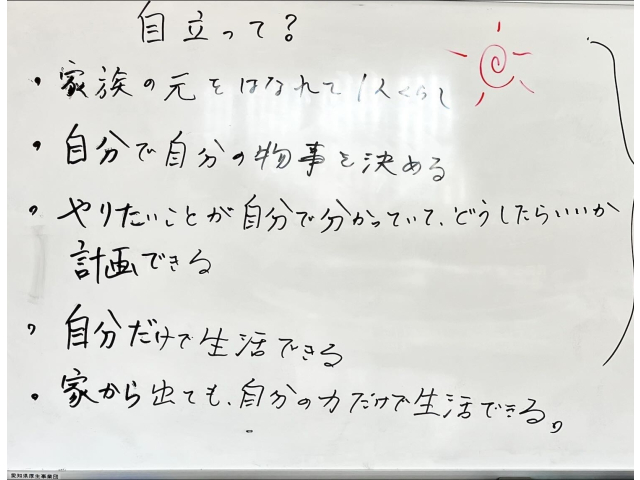 自立って?
・家族の元をはなれて1人ぐらし
・自分で自分の物事を決める
・やりたいことが自分で分かっていて、どうしたらいいか
計画できる
・自分だけで生活できる
・家から出ても、自分の力だけで生活できる。
愛知県厚生事業団